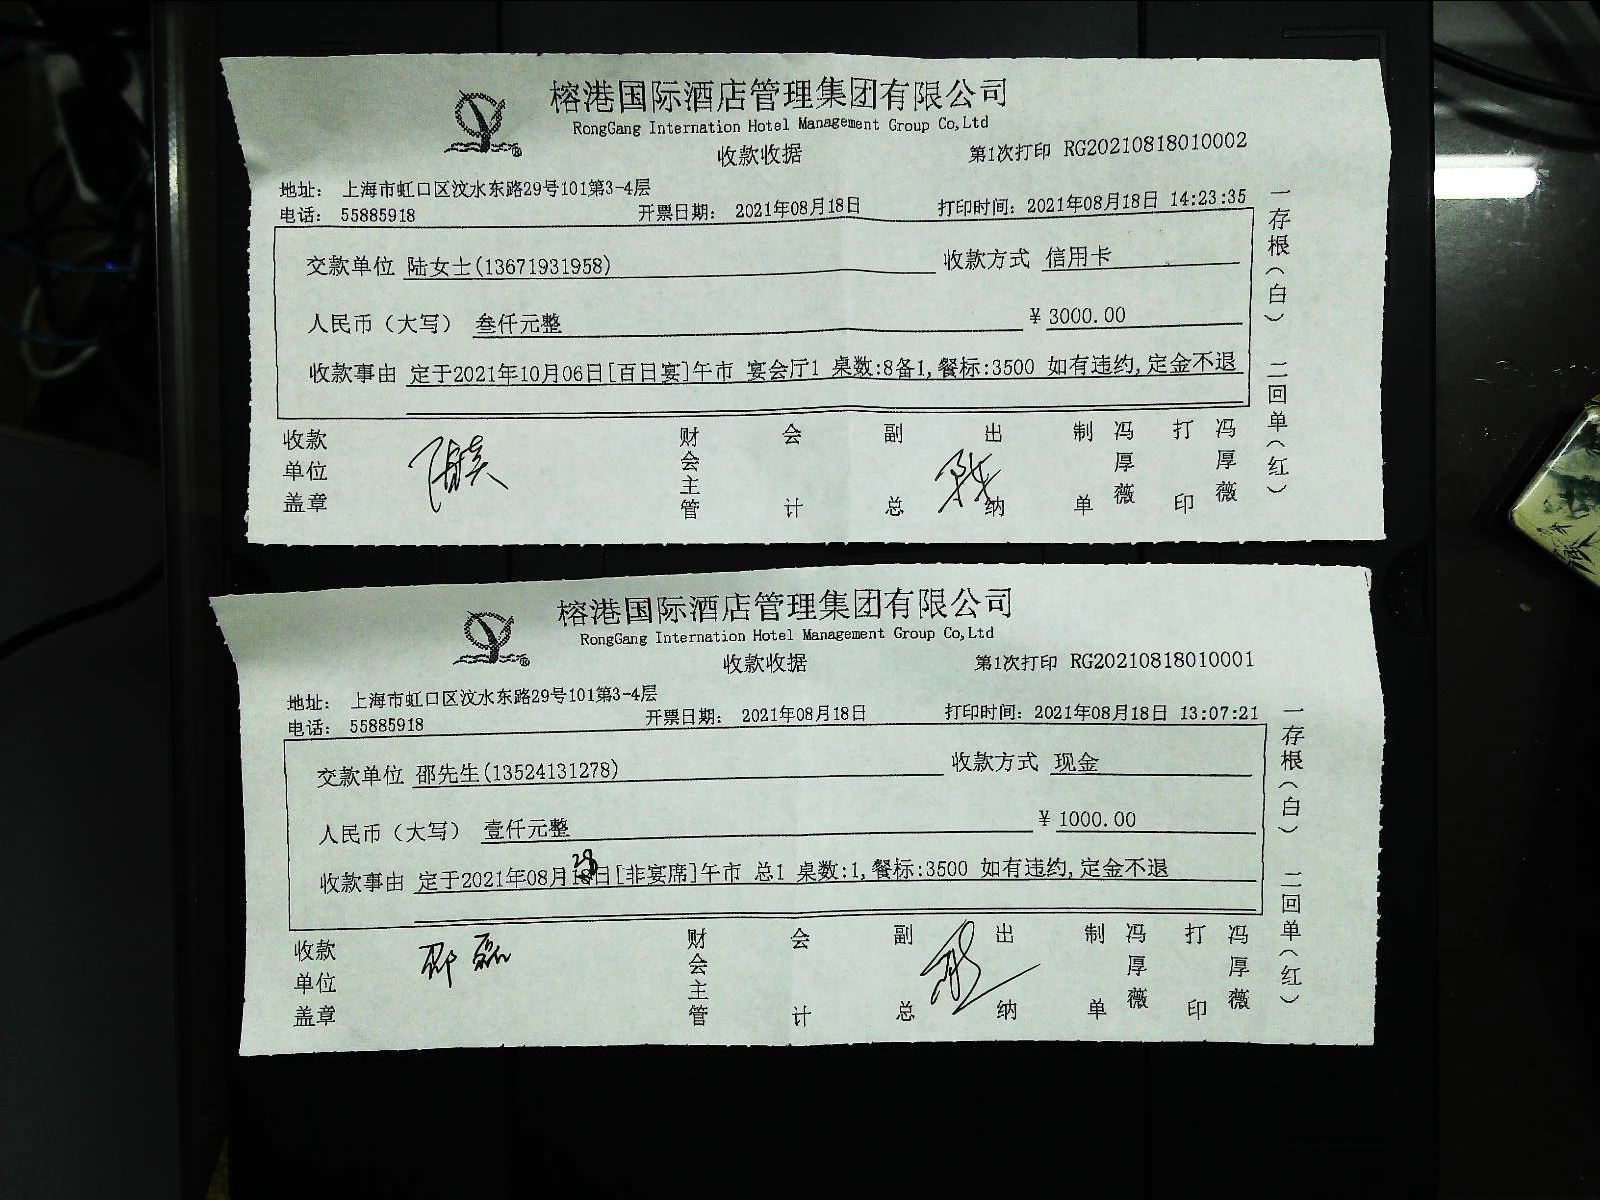 榕港国际酒店管理集团有限公司
RongGang Internation Hotel Management Group Co,Ltd
收款收据 第1次打印 RG20210818010002
地址： 上海市虹口区汶水东路29号101第3-4层
电话： 55885918 开票日期： 2021年08月18日 打印时间：2021年08月18日 14:23:35
交款单位 陆女士(13671931958) 收款方式 信用卡
人民币（大写） 叁仟元整 ￥3000.00
收款事由 定于2021年10月06日[百日宴]午市 宴会厅1 桌数:8备1,餐标:3500 如有违约,定金不退
收款单位盖章 财会主管 会计 副总 出纳 制单 冯厚薇 打印 冯厚薇
一存根（白） 二回单（红）
榕港国际酒店管理集团有限公司
RongGang Internation Hotel Management Group Co,Ltd
收款收据 第1次打印 RG20210818010001
地址： 上海市虹口区汶水东路29号101第3-4层
电话： 55885918 开票日期： 2021年08月18日 打印时间：2021年08月18日 13:07:21
交款单位 邵先生(13524131278) 收款方式 现金
人民币（大写） 壹仟元整 ￥1000.00
收款事由 定于2021年08月28日[非宴席]午市 总1 桌数:1,餐标:3500 如有违约,定金不退
收款单位盖章 邵磊 财会主管 会计 副总 出纳 制单 冯厚薇 打印 冯厚薇
一存根（白） 二回单（红）